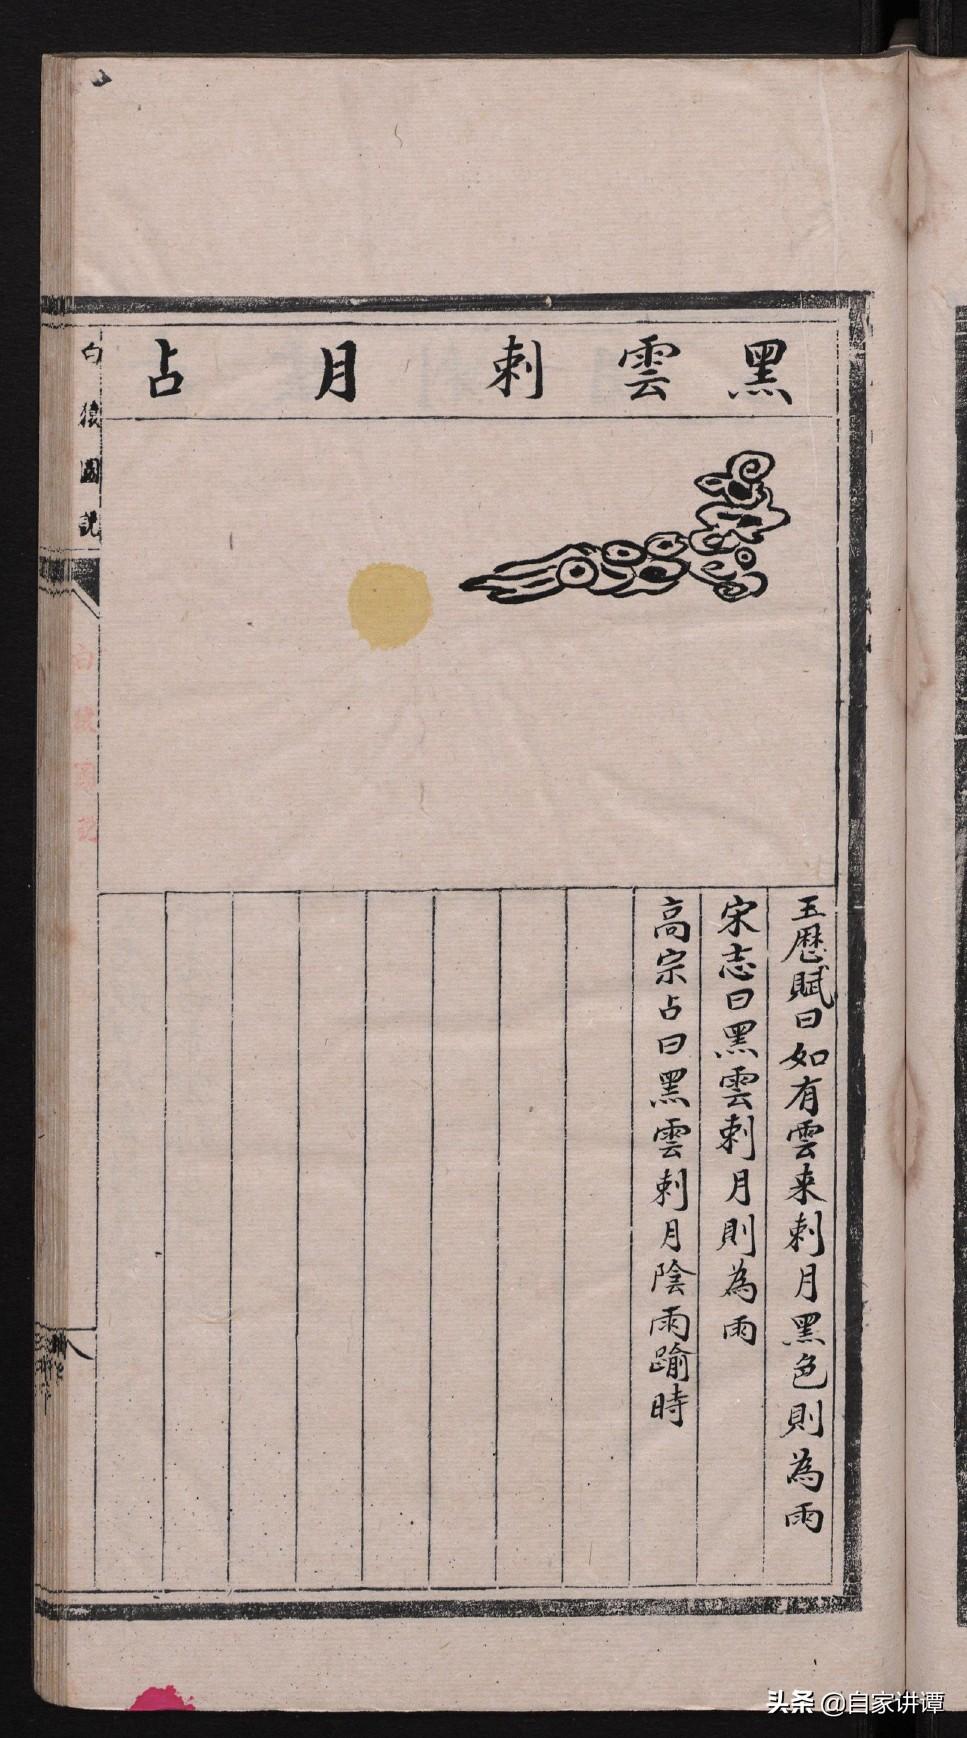 黑雲刺月占
玉歷賦曰如有雲来刺月黑色則為雨
宋志曰黑雲刺月則為雨
高宗占曰黑雲刺月陰雨踰時
白猿圖説
白猿圖説
头条 @自家讲谭